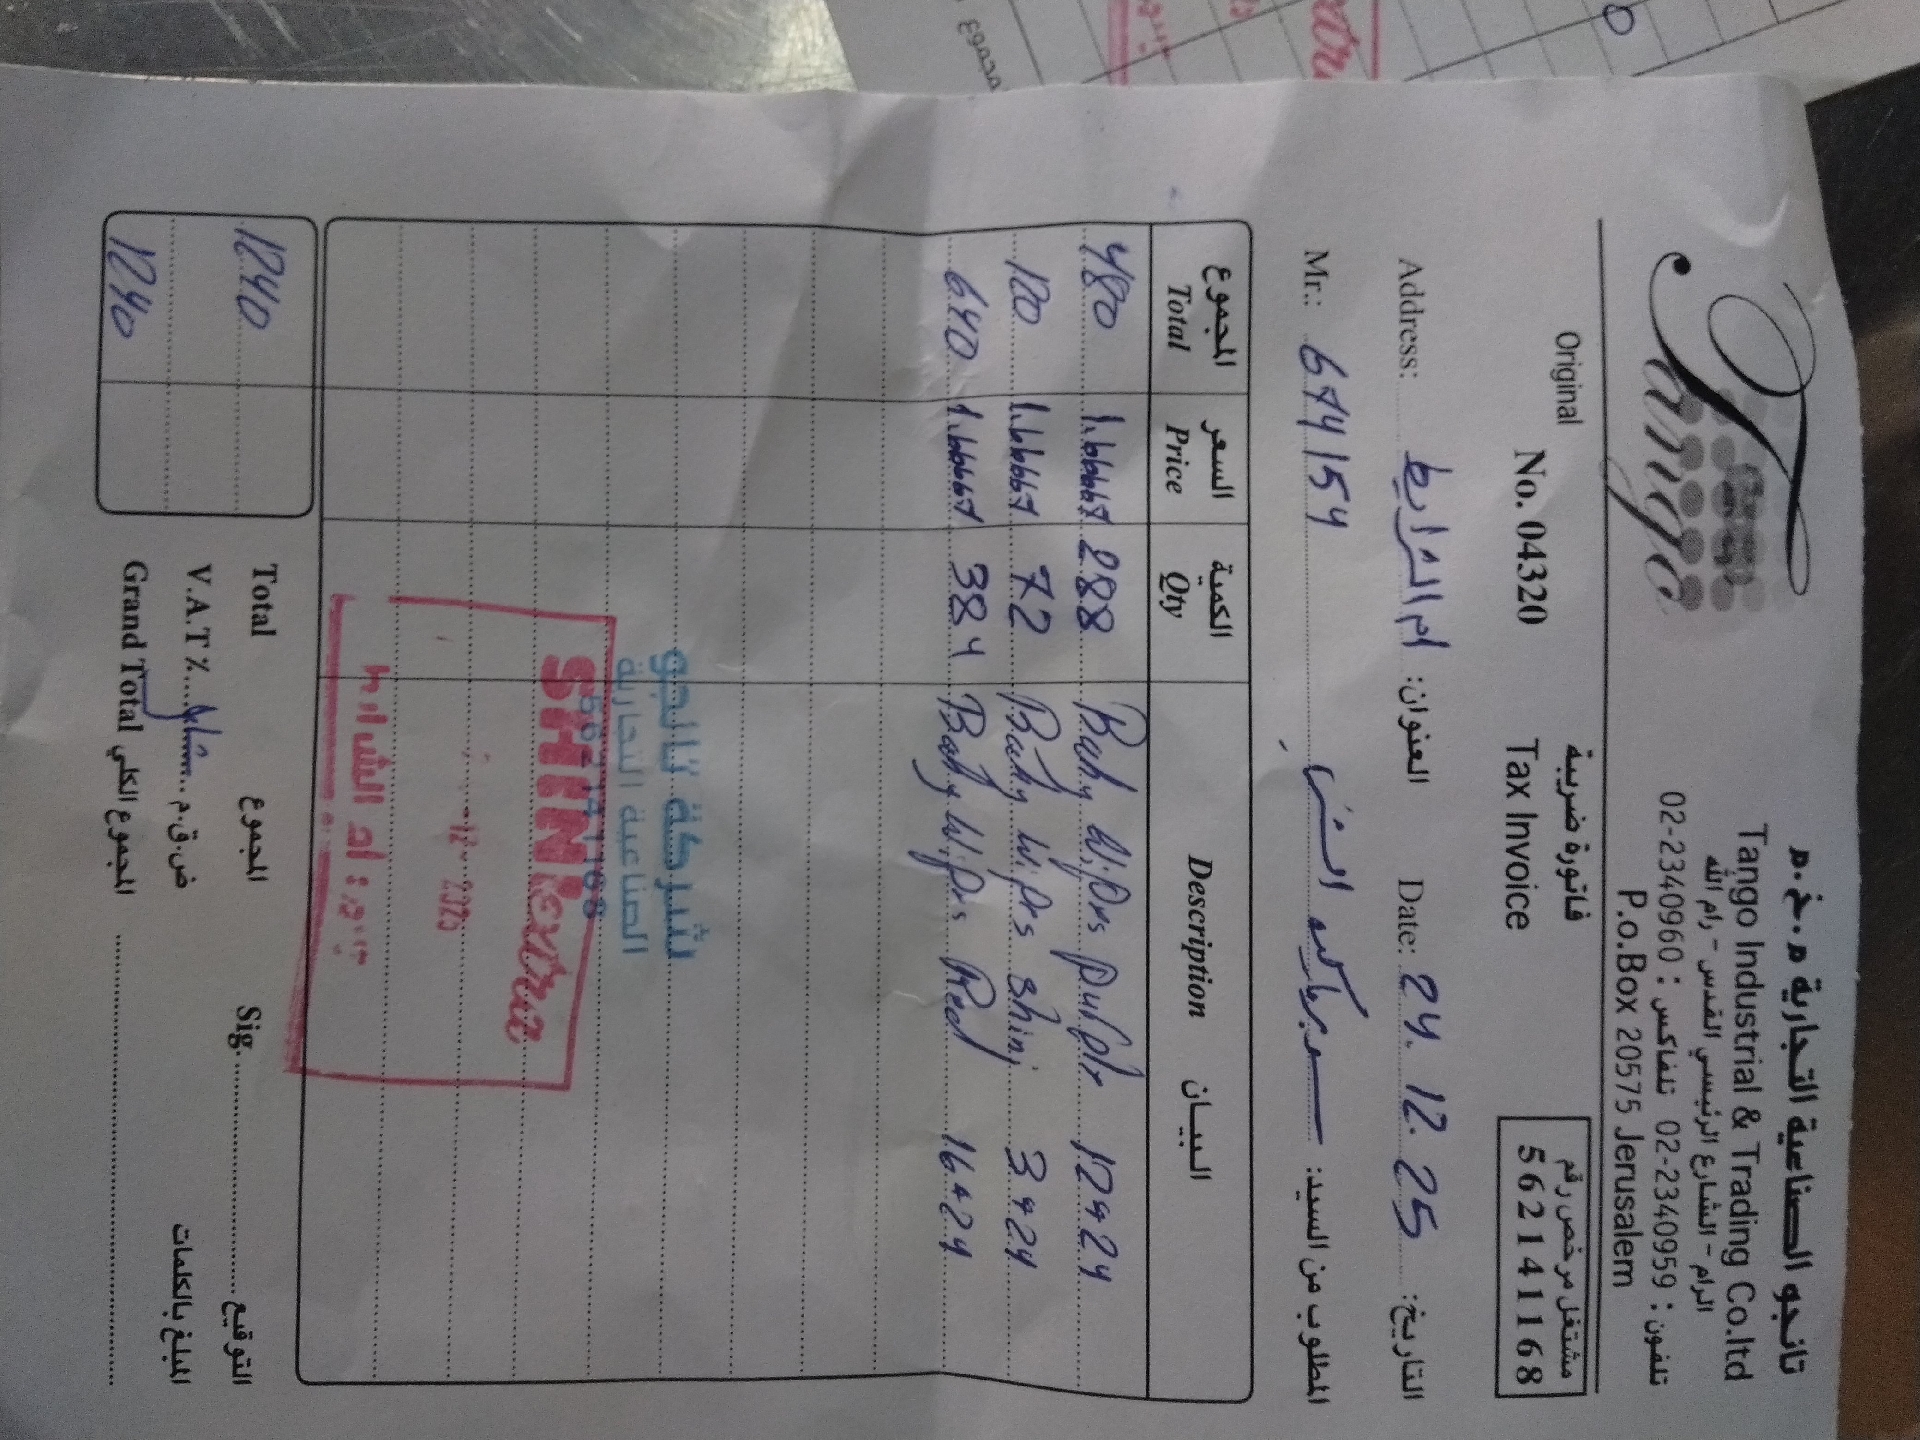 Tango
تانجو الصناعية التجارية م.خ.م
Tango Industrial & Trading Co.ltd
الرام - الشارع الرئيسي القدس - رام الله
تلفون : 02-2340959 تلفاكس : 02-2340960
P.o.Box 20575 Jerusalem
Original
No. 04320
فاتورة ضريبة
Tax Invoice
مشتغل مرخص رقم
562141168
Address: ام الشرايط العنوان:
Date: 24.12.25 التاريخ:
Mr.: المطلوب من السيد:
المجموع السعر الكمية
Total Price Qty Description البيــان
480 1.66667 288 Baby Wipes purple 12*24
120 1.66667 72 Baby Wipes shiny 3*24
640 1.66667 384 Baby Wipes Red 16*24
شركة تانجو
الصناعية التجارية
562141168
SHINI extra
12- 2025
بيرة : ام الشرايط
1240 Total المجموع Sig. التوقيع
V.A.T٪ شامل ض.ق.م المبلغ بالكلمات
1240 Grand Total المجموع الكلي
مجموع
extra